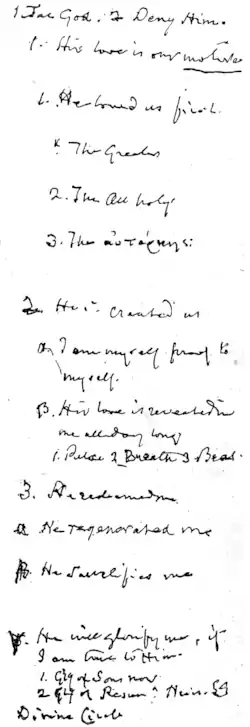 God. & Deny Him.
1. His love is our motive
1. He loved us first.
The Greater
2. The All holy.
3. The αὐτάρκης:
2. He created us
I am myself proof to
myself.
β. His love is revealed in
me all day long
1. Pulse 2 Breath 3 Bread.
3. He redeemed me
He regenerated me
He sanctifies me
He will glorify me, if
I am true to Him.
1. Gift of Sons now
2 Gift of
Divine Circle